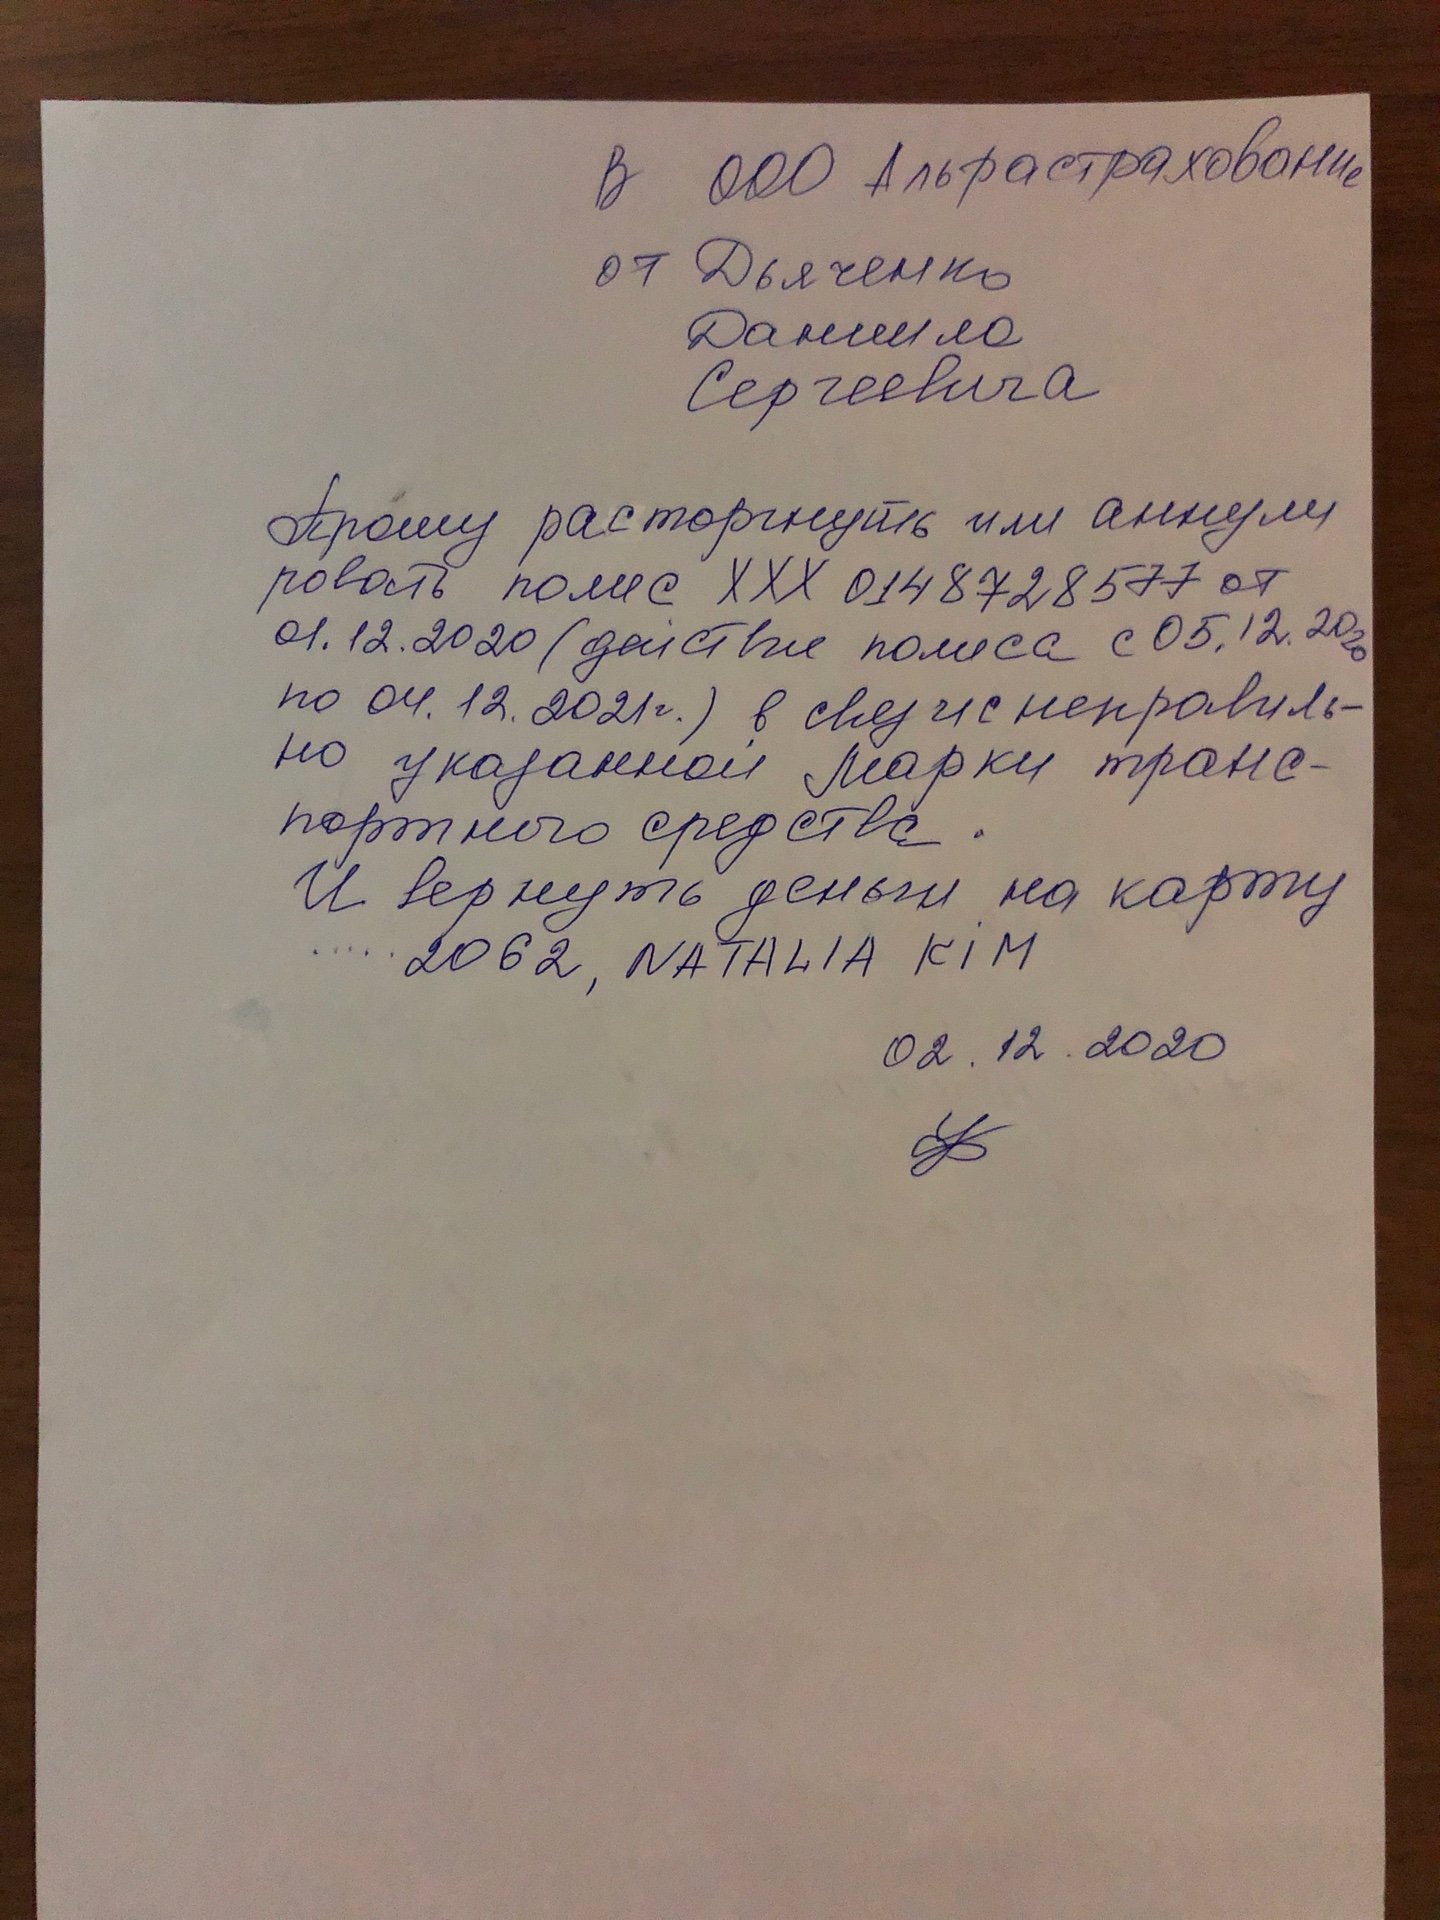 В ООО Альфастрахование
от Дьяченко
Даниила
Сергеевича
Прошу расторгнуть или аннули
ровать полис ХХХ 0148728577 от
01.12.2020 (действие полиса с 05.12.2020
по 04.12.2021г.) в случае неправиль-
но указанной марки транс-
портного средства.
И вернуть деньги на карту
..... 2062, NATALIA KIM
02.12.2020